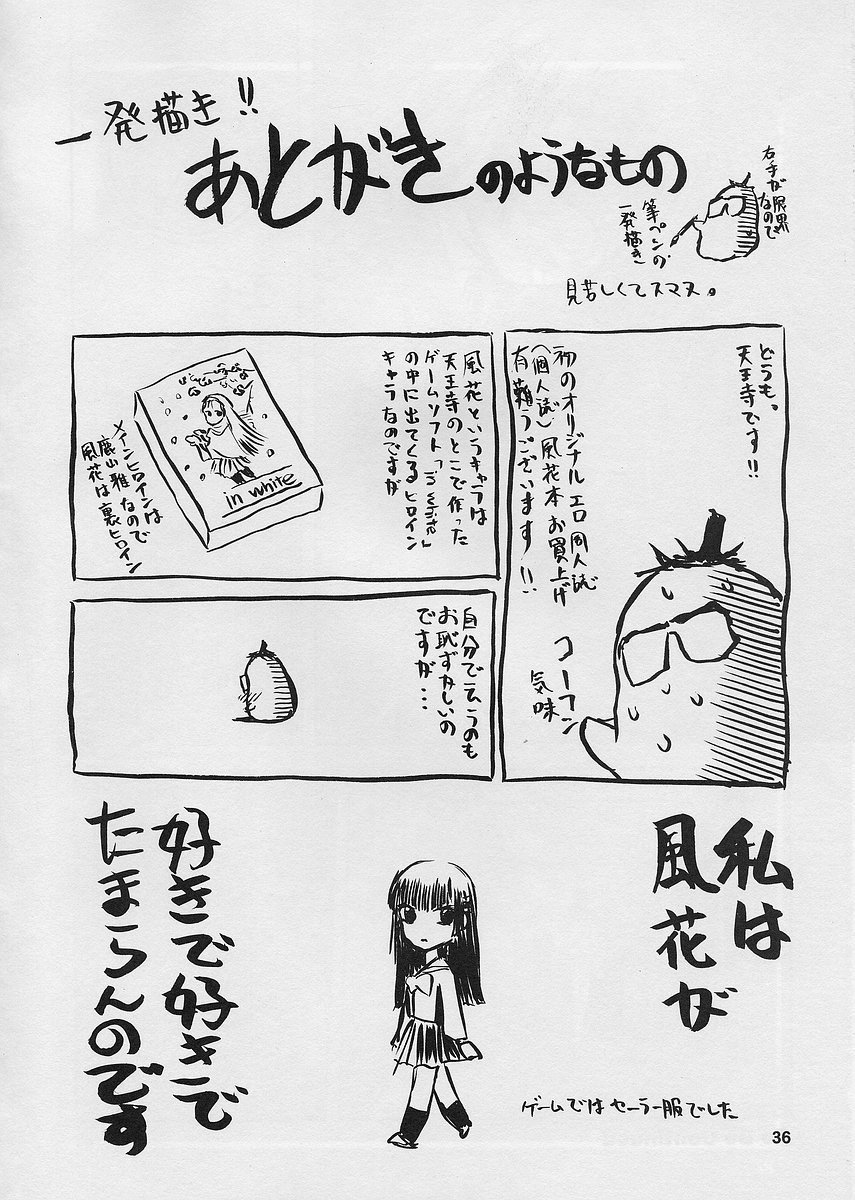 一発描き!!
あとがきのようなもの
右手が限界
なので
筆ペンの
一発描き
見苦しくてスマヌ。
どうも。
天王寺です!!
初のオリジナル エロ同人誌
(個人誌)風花本 お買上げ
有難うございます!!
コーフン
気味
風花というキャラは
天王寺のとこで作った
ゲームソフト「in white」
の中に出てくるヒロイン
キャラなのですが
in white
メインヒロインは
鹿山雅なので
風花は裏ヒロイン
自分で云うのも
お恥ずかしいの
ですが・・・
私は
風花が
好きで好きで
たまらんのです
ゲームではセーラー服でした
36